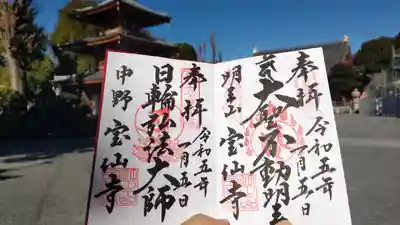 奉拝
令和五年
一月五日
大師不動明王
明王山
宝仙寺
奉拝
令和五年
一月五日
日輪弘法大師
中野
宝仙寺